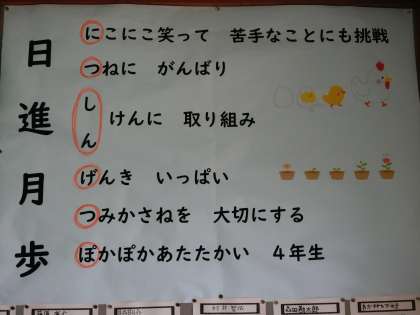 日進月歩
にこにこ笑って 苦手なことにも挑戦
つねに がんばり
しんけんに 取り組み
げんき いっぱい
つみかさねを 大切にする
ぽかぽかあたたかい 4年生